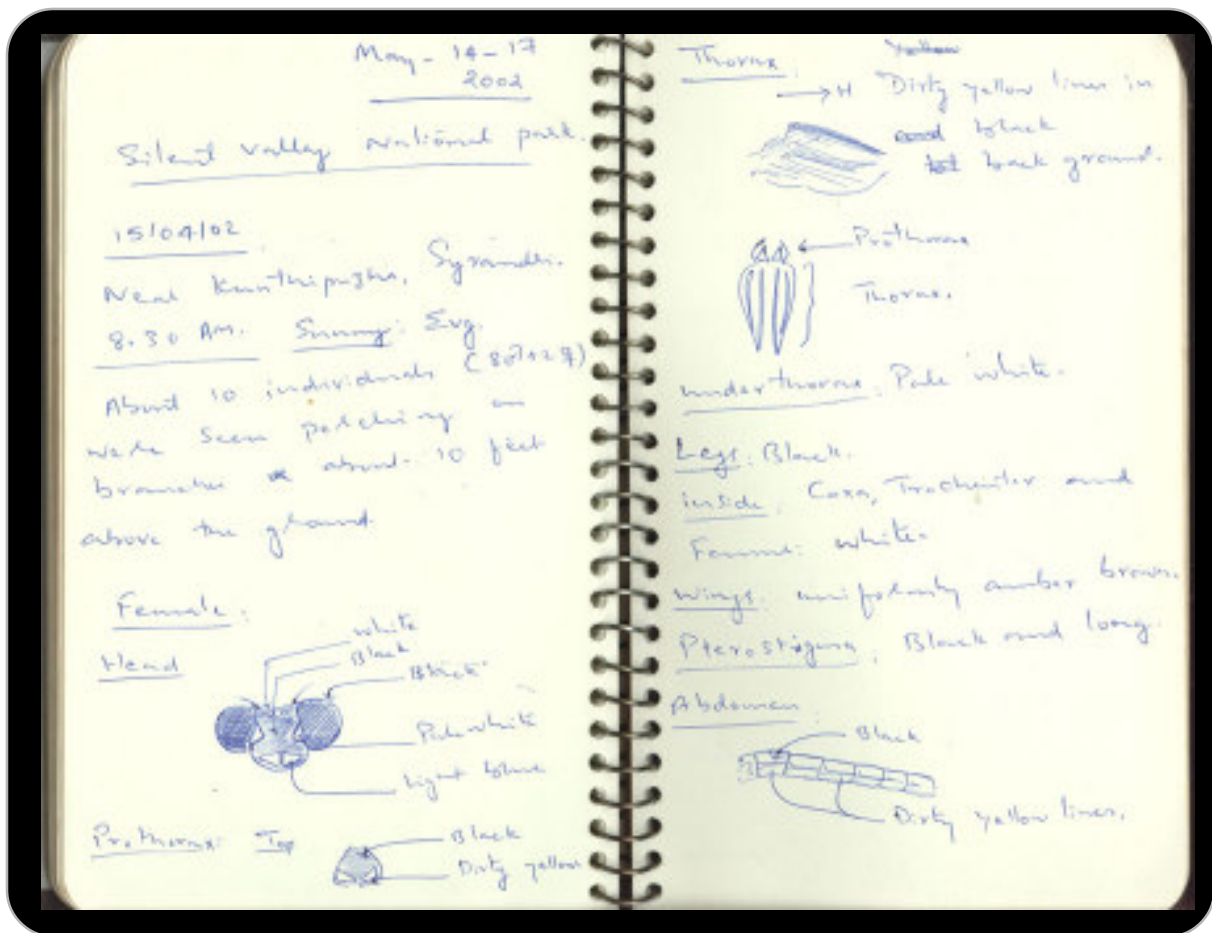 May - 14 - 17
2002
Silent Valley National park.
15/04/02
Near Kunthipuzha, Syrandhri.
8.30 AM. Sunny: Evg.
About 10 individuals (8♂+2♀)
were seen perching on
branches about 10 feet
above the ground
Female:
Head
white
Black
Black
Pale white
Light blue
Prothorax: Top
Black
Dirty yellow
Thorax.
Yellow
→ H Dirty yellow lines in
black
back ground.
Prothorax
Thorax.
under thorax: Pale white.
Legs: Black.
inside: Coxa, Trochanter and
Femur: white.
Wings: uniformly amber brown.
Pterostigma: Black and long.
Abdomen:
Black
Dirty yellow lines.